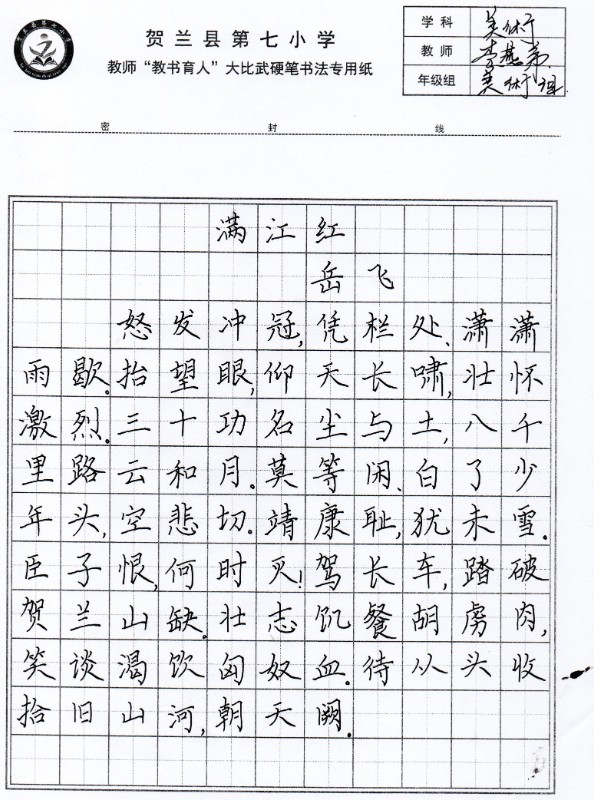 贺兰县第七小学
教师“教书育人”大比武硬笔书法专用纸
学科 美術
教师 李燕弟
年级组 美術组
密 封 线
满江红
岳飞
怒发冲冠,凭栏处、潇潇
雨歇。抬望眼,仰天长啸,壮怀
激烈。三十功名尘与土,八千
里路云和月。莫等闲、白了少
年头,空悲切。靖康耻,犹未雪。
臣子恨,何时灭!驾长车,踏破
贺兰山缺。壮志饥餐胡虏肉,
笑谈渴饮匈奴血。待从头收
拾旧山河,朝天阙。